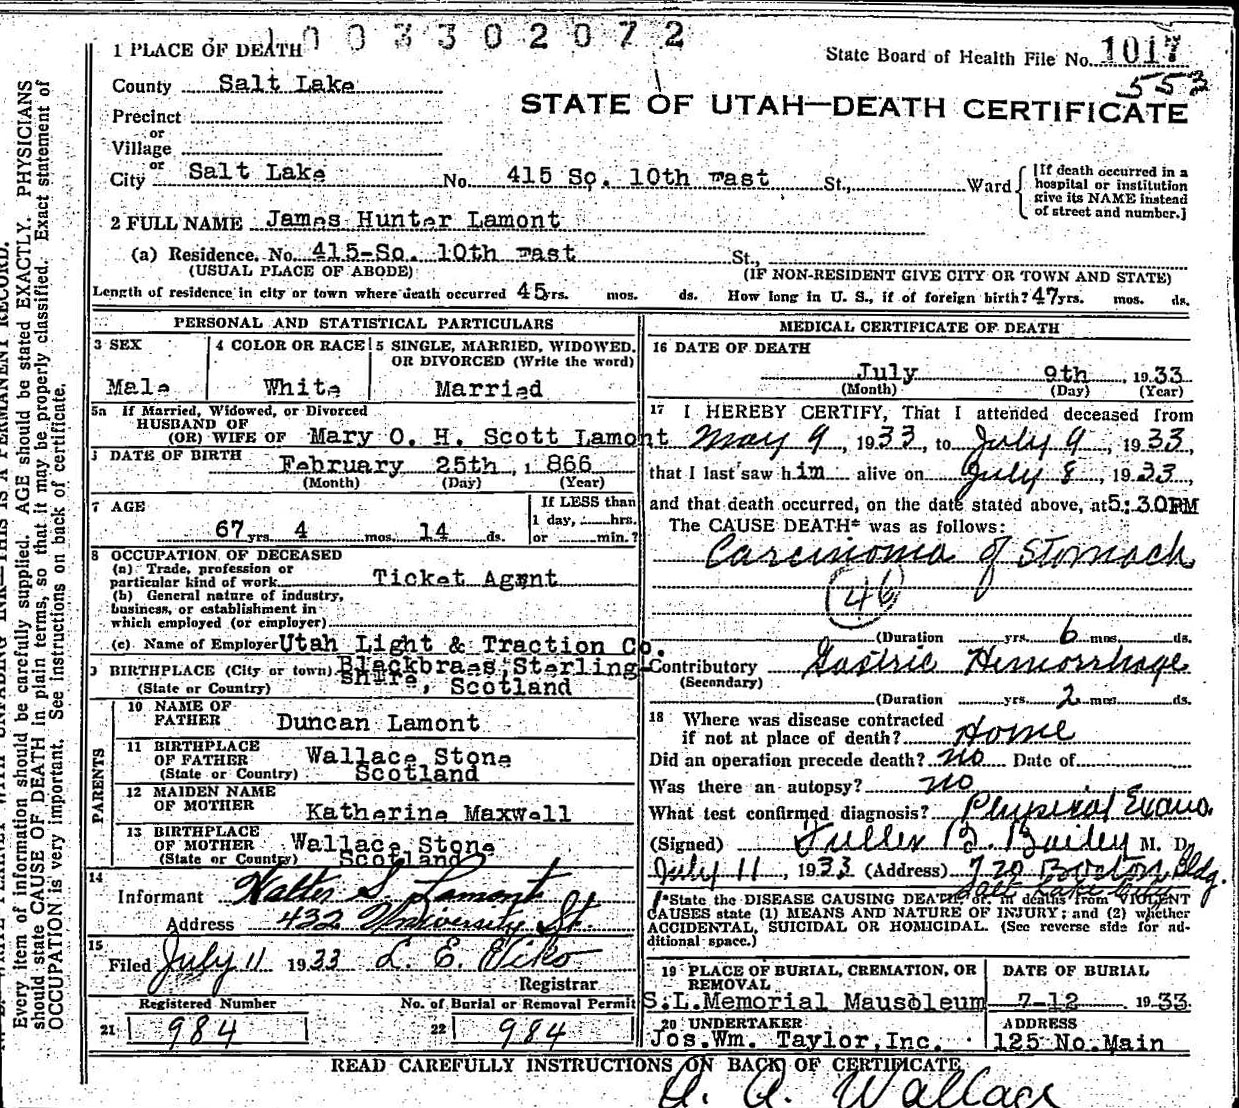 1003302072
1 PLACE OF DEATH
State Board of Health File No. 1017
553
County Salt Lake
STATE OF UTAH—DEATH CERTIFICATE
Precinct
or
Village
or
City Salt Lake No. 415 So. 10th East St., Ward
[If death occurred in a
hospital or institution
give its NAME instead
of street and number.]
2 FULL NAME James Hunter Lamont
(a) Residence. No. 415-So. 10th East St.,
(USUAL PLACE OF ABODE) (IF NON-RESIDENT GIVE CITY OR TOWN AND STATE)
Length of residence in city or town where death occurred 45 yrs. mos. ds. How long in U. S., if of foreign birth? 47 yrs. mos. ds.
PERSONAL AND STATISTICAL PARTICULARS
3 SEX
Male
4 COLOR OR RACE
White
5 SINGLE, MARRIED, WIDOWED,
OR DIVORCED (Write the word)
Married
5a If Married, Widowed, or Divorced
HUSBAND OF
(OR) WIFE OF Mary O. H. Scott Lamont
DATE OF BIRTH February 25th, 1866
(Month) (Day) (Year)
7 AGE
67 yrs. 4 mos. 14 ds.
If LESS than
1 day, hrs.
or min.?
8 OCCUPATION OF DECEASED
(a) Trade, profession or
particular kind of work Ticket Agent
(b) General nature of industry,
business, or establishment in
which employed (or employer)
(c) Name of Employer Utah Light & Traction Co.
9 BIRTHPLACE (City or town) Blackbraes, Sterling-
(State or Country) shire, Scotland
PARENTS
10 NAME OF
FATHER Duncan Lamont
11 BIRTHPLACE
OF FATHER Wallace Stone
(State or Country) Scotland
12 MAIDEN NAME
OF MOTHER Katherine Maxwell
13 BIRTHPLACE
OF MOTHER Wallace Stone
(State or Country) Scotland
14
Informant Walter S. Lamont
Address 432 University St.
15
Filed July 11 1933 L. E. Viko
Registrar
Registered Number No. of Burial or Removal Permit
21 984 22 984
MEDICAL CERTIFICATE OF DEATH
16 DATE OF DEATH
July 9th, 1933
(Month) (Day) (Year)
17 I HEREBY CERTIFY, That I attended deceased from
May 9, 1933, to July 9, 1933,
that I last saw him alive on July 8, 1933,
and that death occurred, on the date stated above, at 5:30PM
The CAUSE DEATH* was as follows:
Carcinoma of Stomach
46
(Duration yrs. 6 mos. ds.
Contributory Gastric Hemorrhage
(Secondary)
(Duration yrs. 2 mos. ds.
18 Where was disease contracted
if not at place of death? Home
Did an operation precede death? no Date of
Was there an autopsy? no
What test confirmed diagnosis? Physical Exam.
(Signed) Fuller B. Bailey M. D.
July 11, 1933 (Address) 720 Boston Bldg.
Salt Lake City
*State the DISEASE CAUSING DEATH, or, in deaths from VIOLENT
CAUSES state (1) MEANS AND NATURE OF INJURY; and (2) whether
ACCIDENTAL, SUICIDAL OR HOMICIDAL. (See reverse side for ad-
ditional space.)
19 PLACE OF BURIAL, CREMATION, OR
REMOVAL
S.L.Memorial Mausoleum
DATE OF BURIAL
7-12 1933
20 UNDERTAKER
Jos.Wm. Taylor,Inc.
ADDRESS
125 No.Main
READ CAREFULLY INSTRUCTIONS ON BACK OF CERTIFICATE
A. A. Wallace
Every item of information should be carefully supplied. AGE should be stated EXACTLY. PHYSICIANS
should state CAUSE OF DEATH in plain terms, so that it may be properly classified. Exact statement of
OCCUPATION is very important. See instructions on back of certificate.